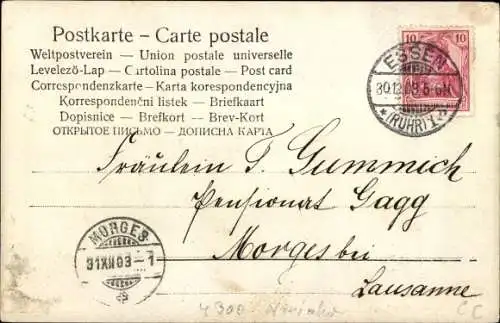 Postkarte – Carte postale
Weltpostverein – Union postale universelle
Levelező-Lap – Cartolina postale – Post card
Correspondenzkarte – Karta korespondencyjna
Korrespondenční listek – Briefkaart
Dopisnice – Brefkort – Brev-Kort
ОТКРЫТОЕ ПИСЬМО – ДОПИСНА КАРТА
10 10
ESSEN
30.12.03.5-6N
* (RUHR) 1. *
Fräulein F. Gummich
Pensionat Gagg
Morges bei
Lausanne
MORGES
31XII03-1
4300